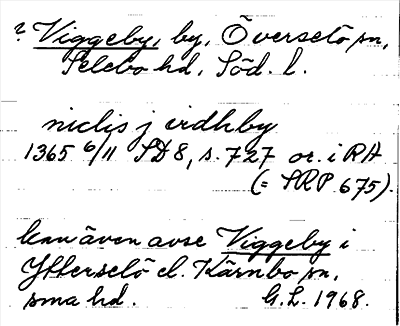 ? Viggeby, by, Överselö sn,
Selebo hd, Söd. l.
niclis j vidhby
1365 6/11 SD 8, s. 727 or. i RA
(= SRP 675).
kan även avse Viggeby i
Ytterselö el. Kärnbo sn,
sma hd. G.L. 1968.